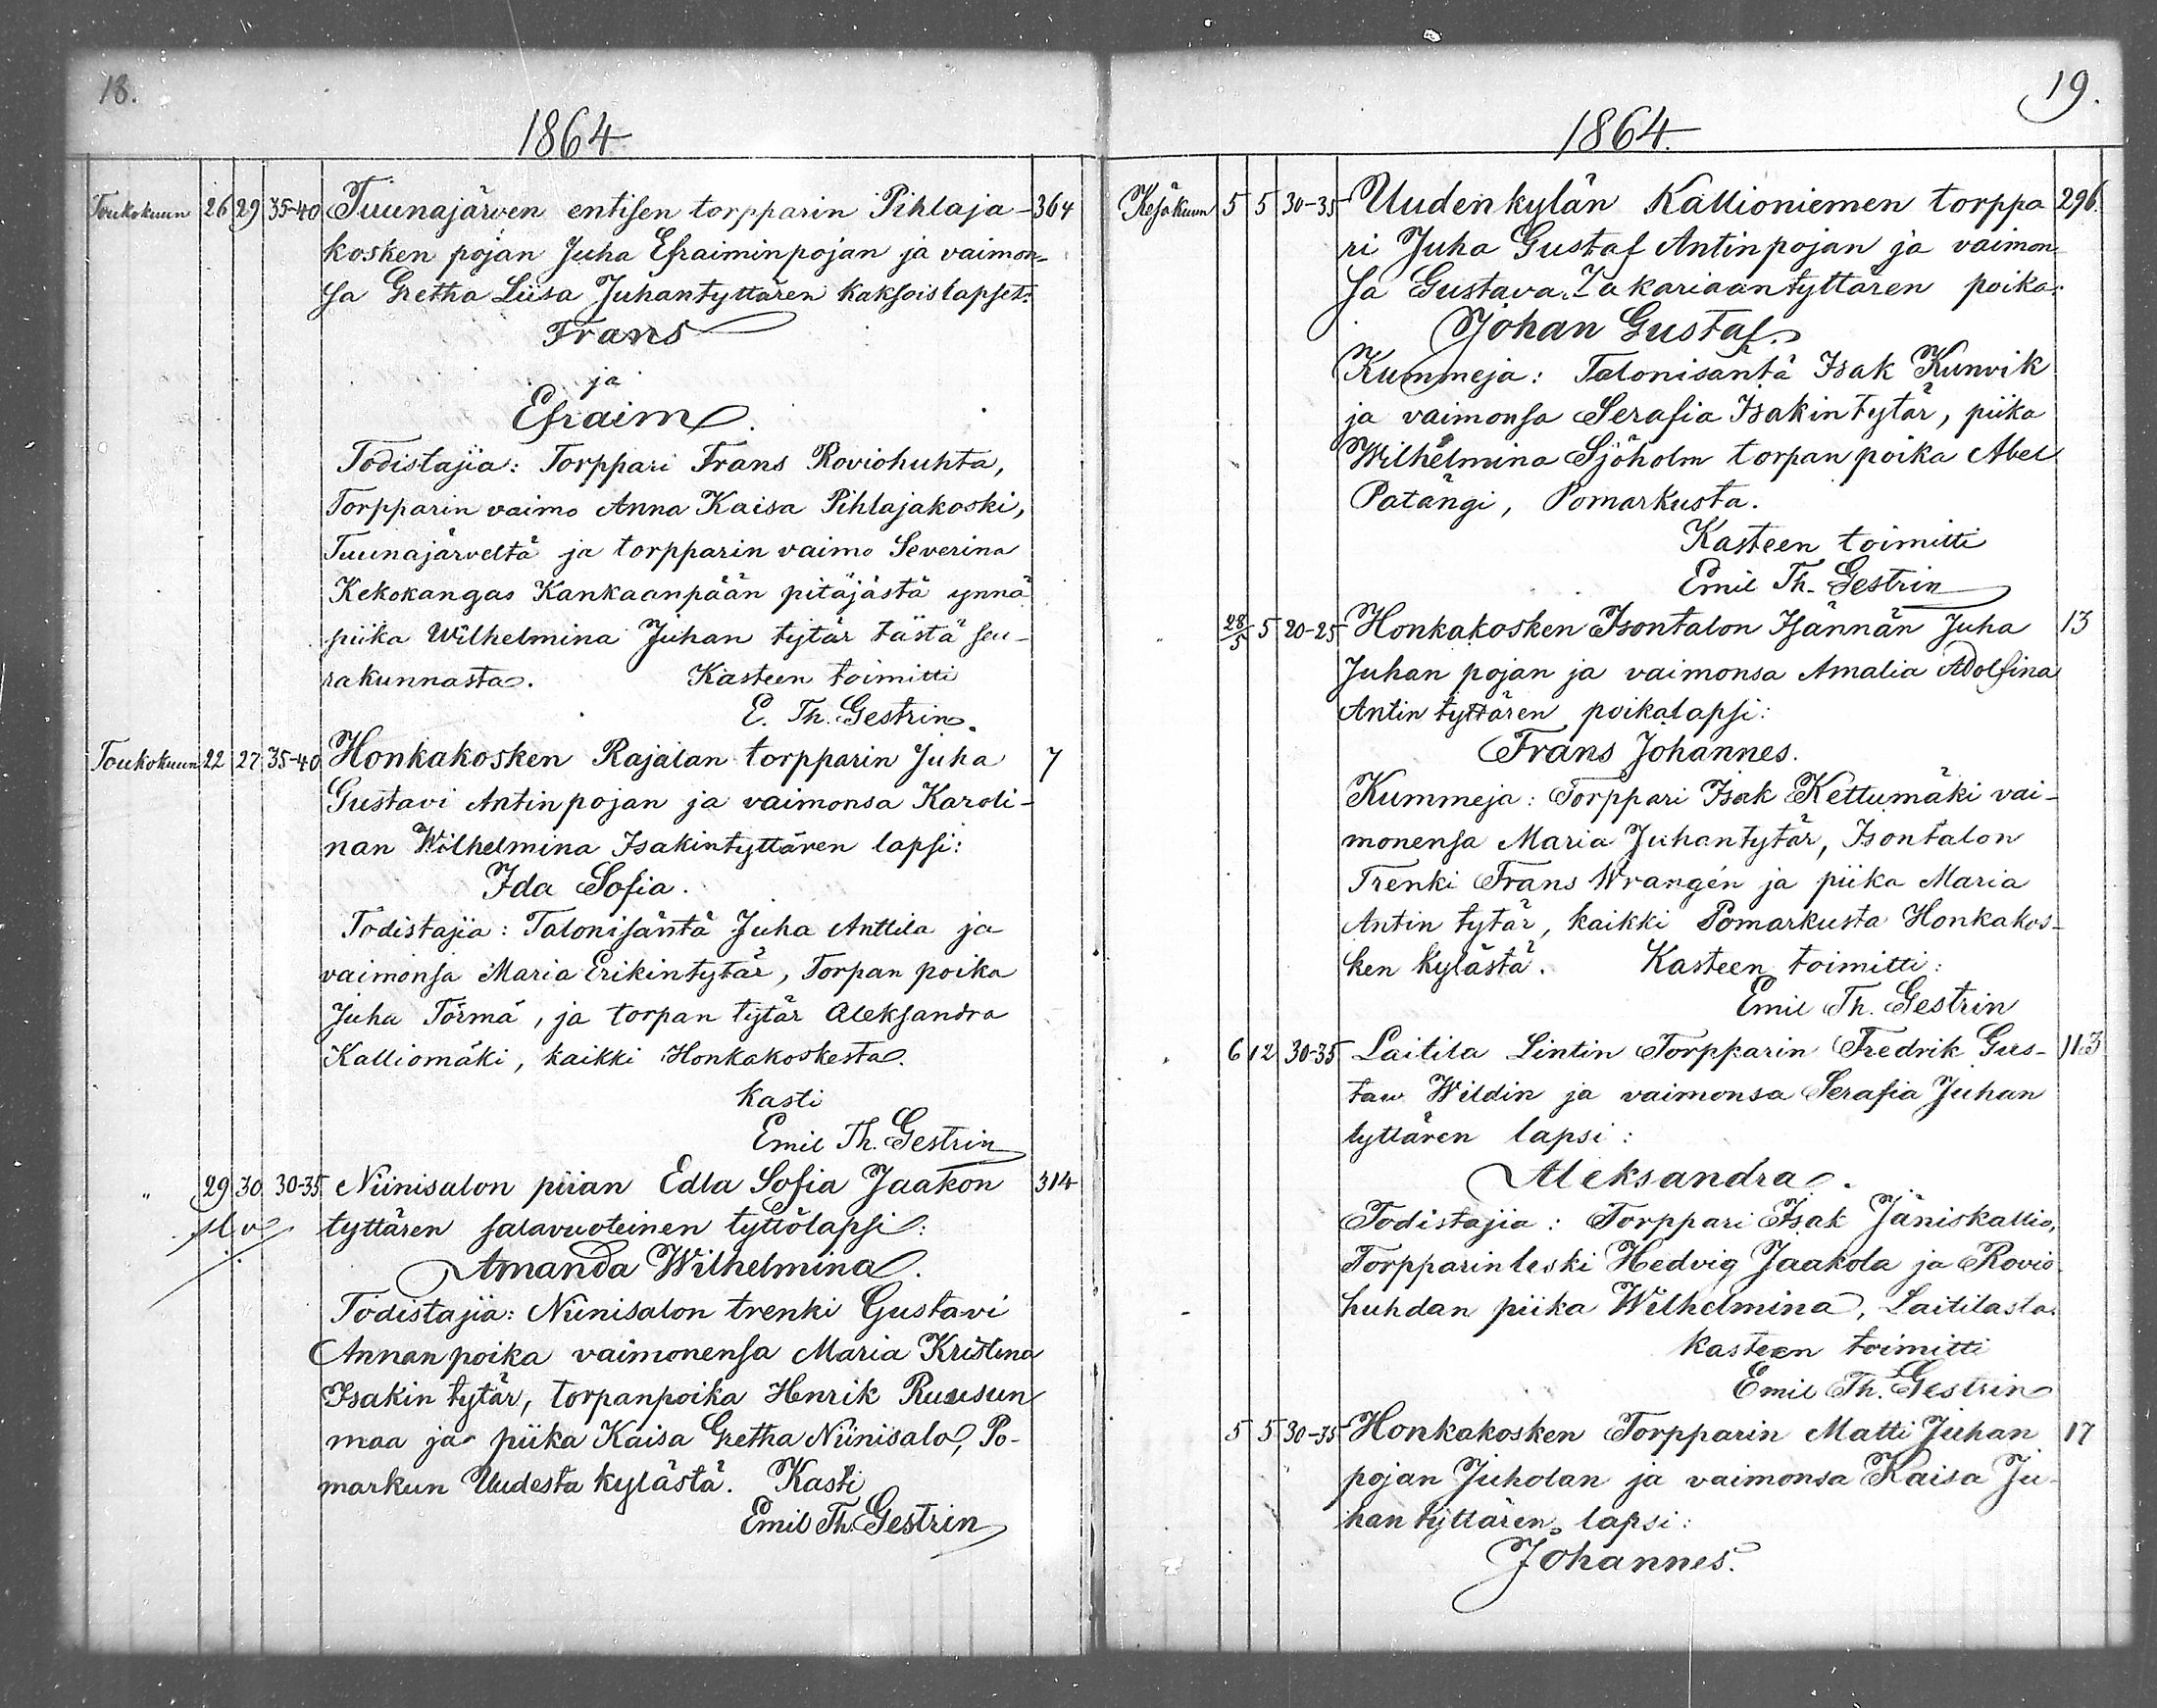 18.
1864
Toukokuun 26 29 35-40 Tuunajärven entisen torpparin Pihlaja- 364
kosken pojan Juha Efraiminpojan ja vaimon-
sa Gretha Liisa Juhantyttären kaksoislapset:
Frans
ja
Efraim.
Todistajia: Torppari Frans Roviohuhta,
Torpparin vaimo Anna Kaisa Pihlajakoski,
Tuunajärveltä ja torpparin vaimo Severina
Kekokangas Kankaanpään pitäjästä ynnä
piika Wilhelmina Juhan tytär tästä seu-
rakunnasta. Kasteen toimitti
E. Th. Gestrin.
Toukokuun 22 27 35-40 Honkakosken Rajalan torpparin Juha 7
Gustavi Antinpojan ja vaimonsa Karoli-
nan Wilhelmina Isakintyttären lapsi:
Ida Sofia.
Todistajia: Talonisäntä Juha Anttila ja
vaimonsa Maria Erikintytär, Torpan poika
Juha Törmä, ja torpan tytär Aleksandra
Kalliomäki, kaikki Honkakoskesta.
Kasti
Emil Th. Gestrin
" 29 30 30-35 Niinisalon piian Edla Sofia Jaakon 314
tyttären salavuoteinen tyttölapsi:
Amanda Wilhelmina.
Todistajia: Niinisalon trenki Gustavi
Annanpoika vaimonensa Maria Kristina
Isakin tytär, torpanpoika Henrik Ruusun
maa ja piika Kaisa Gretha Niinisalo, Po-
markun Uudesta kylästä. Kasti
Emil Th. Gestrin
19.
1864.
Kesäkuun 5 5 30-35 Uudenkylän Kallioniemen torppa 296.
ri Juha Gustaf Antinpojan ja vaimon
sa Gustava Zakariaantyttären poika:
Johan Gustaf.
Kummeja: Talonisäntä Isak Kunvik
ja vaimonsa Serafia Isakin tytär, piika
Wilhelmina Sjöholm torpan poika Abel
Patängi, Pomarkusta.
Kasteen toimitti
Emil Th. Gestrin
28/5 5 20-25 Honkakosken Isontalon Isännän Juha 13
Juhan pojan ja vaimonsa Amalia Adolfina
Antin tyttären poikalapsi:
Frans Johannes.
Kummeja: Torppari Isak Kettumäki vai-
monensa Maria Juhantytär, Isontalon
Trenki Frans Wrangén ja piika Maria
Antin tytär, kaikki Pomarkusta Honkakos-
ken kylästä. Kasteen toimitti:
Emil Th. Gestrin
6 12 30-35 Laitila Lintin Torpparin Fredrik Gus- 113
taw Wildin ja vaimonsa Serafia Juhan
tyttären lapsi:
Aleksandra.
Todistajia: Torppari Isak Jäniskallio,
Torpparin leski Hedvig Jaakola ja Rovio
huhdan piika Wilhelmina, Laitilasta.
Kasteen toimitti
Emil Th. Gestrin
5 5 30-35 Honkakosken Torpparin Matti Juhan 17
pojan Juholan ja vaimonsa Kaisa Ju-
han tyttären lapsi:
Johannes.